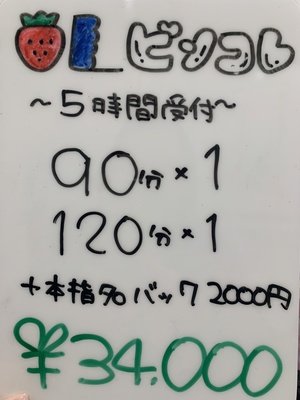 OLピンコレ
~5時間受付~
90分×1
120分×1
+本指名バック2000円
¥34.000